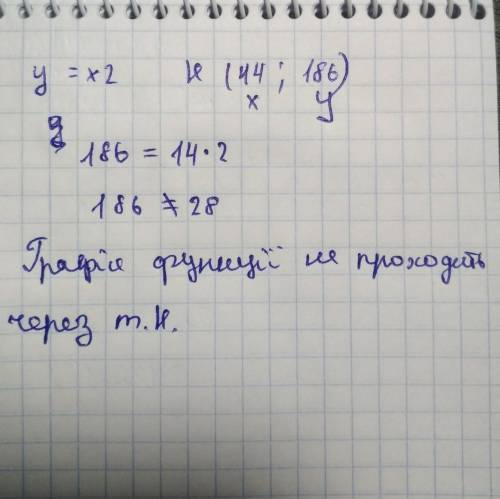 y = x2 К (14 ; 186)
x y
186 = 14·2
186 ≠ 28
Графік функції не проходить
через т.К.